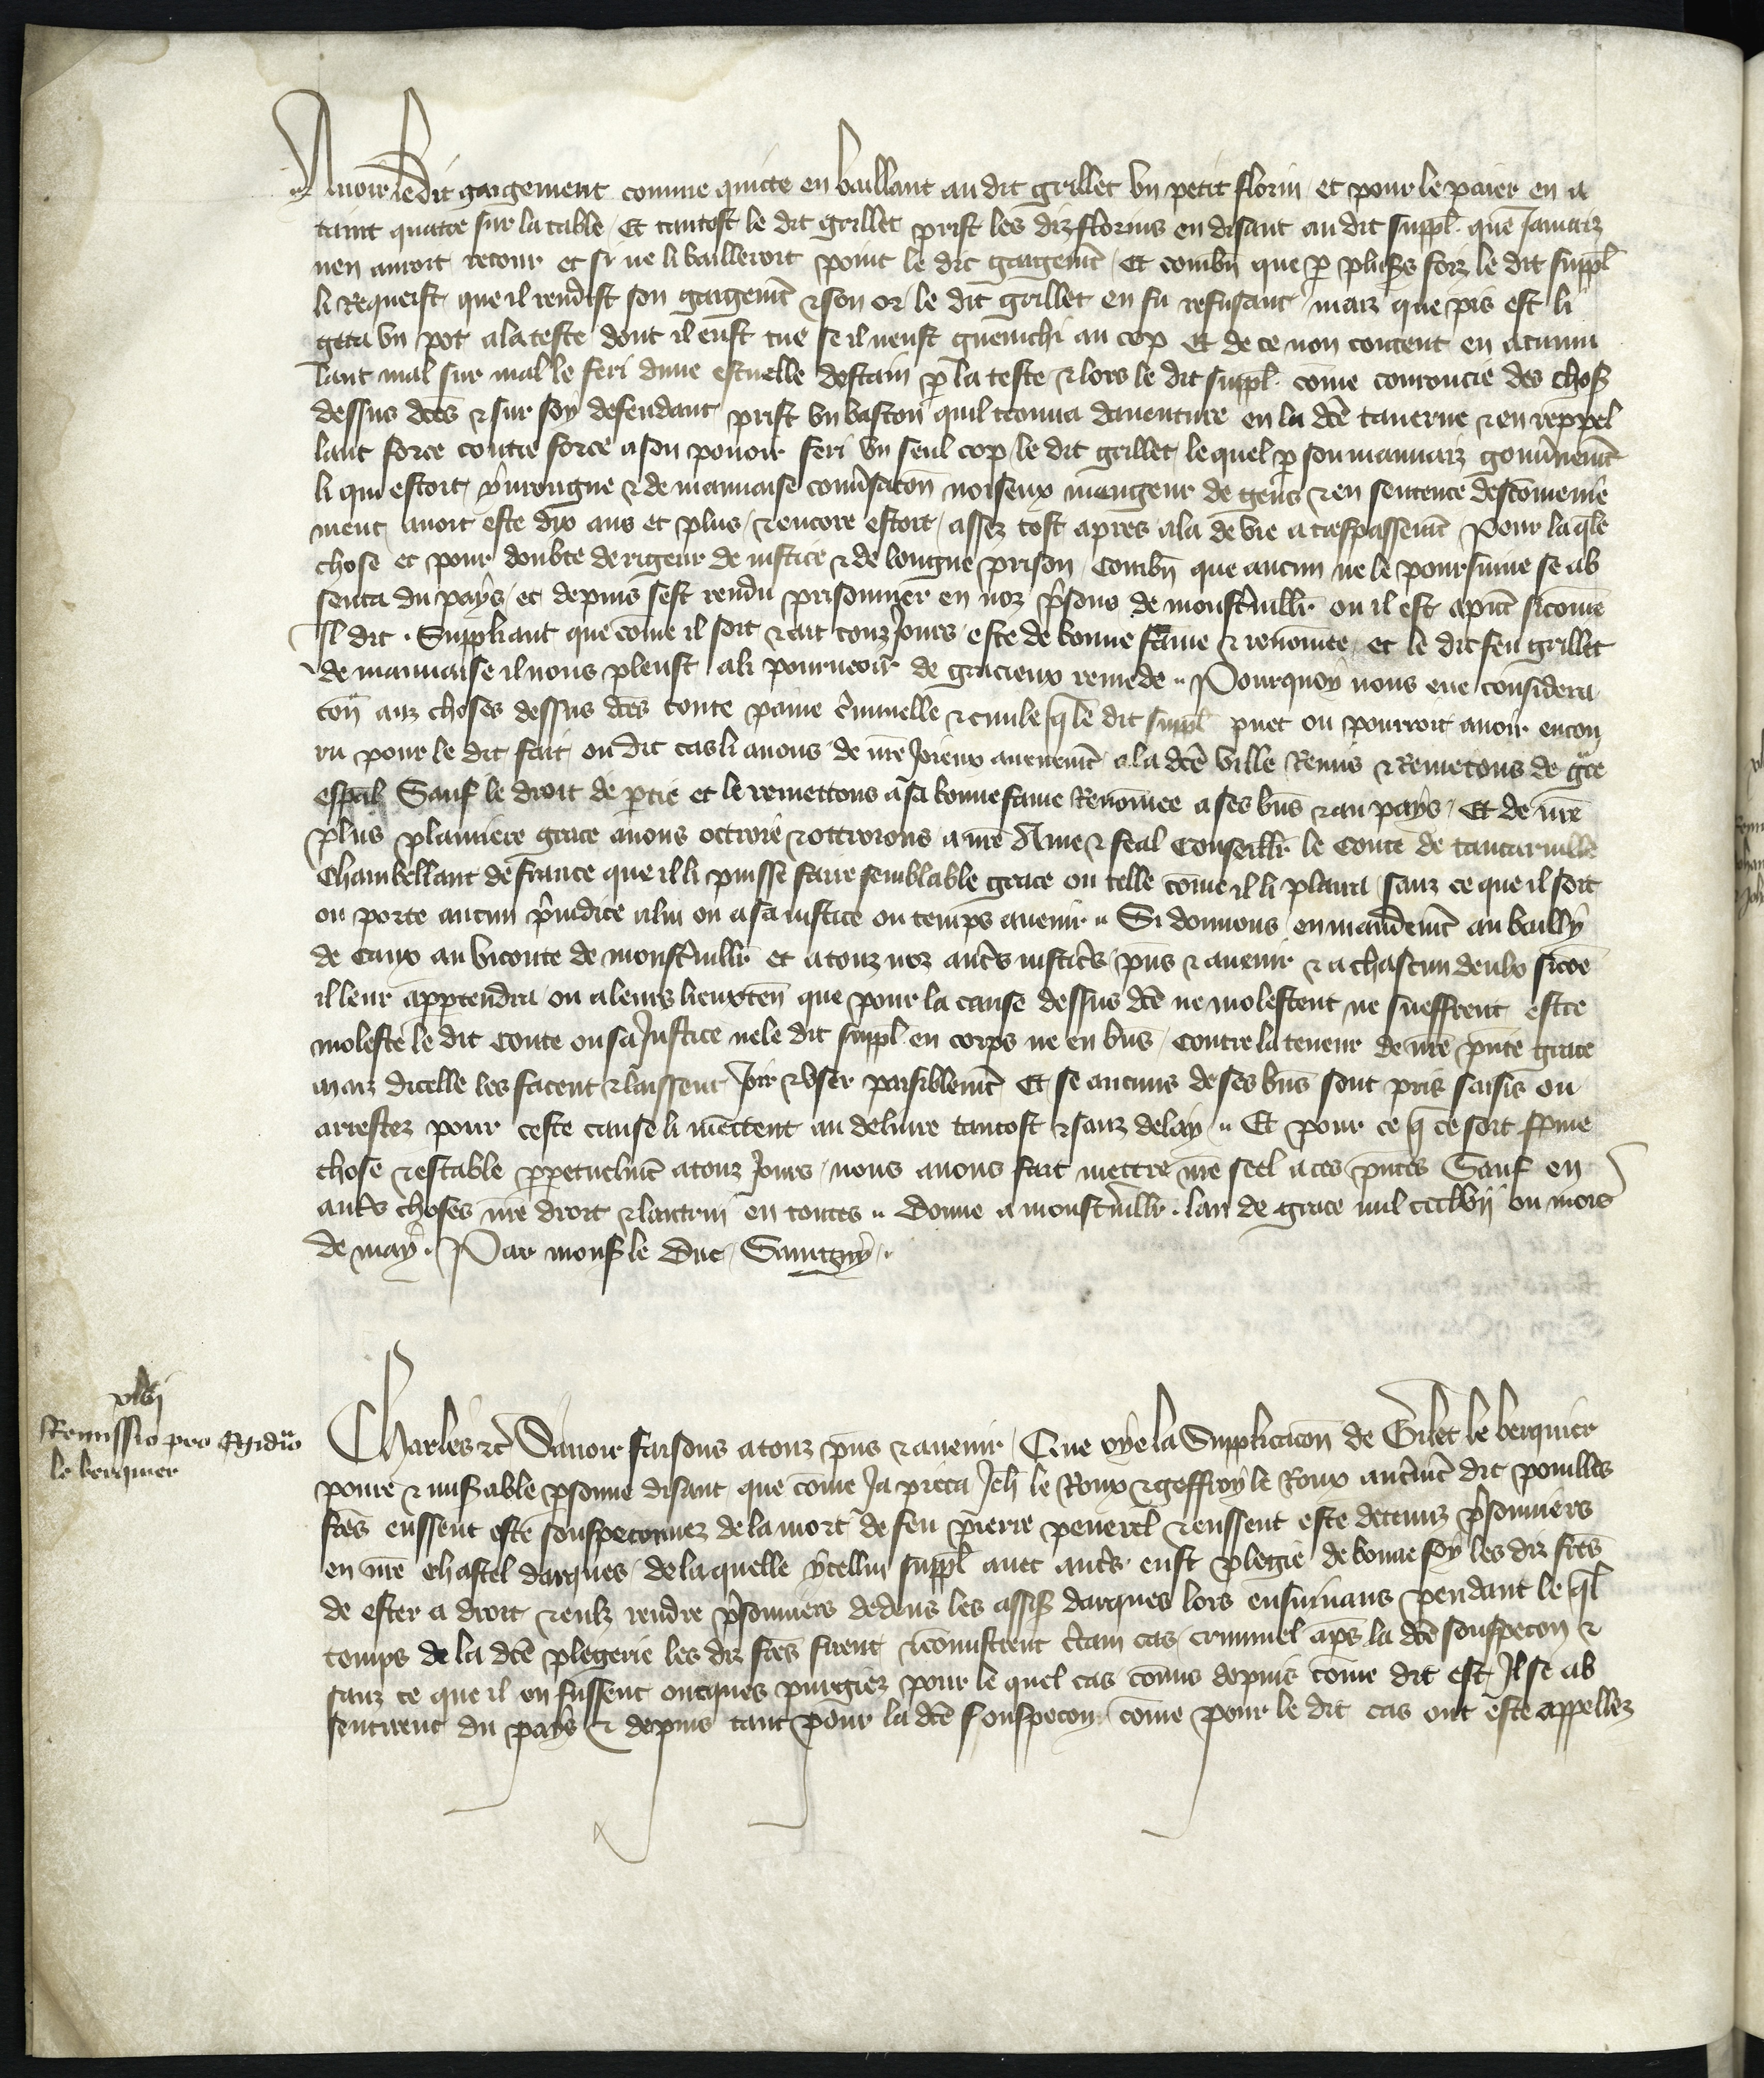 Avoir le dit gaigement comme quicte en baillant au dit grillet un petit florin et pour le paier en a
taint quatre sur la table Et tantost le dit grillet prist les diz florins en disant au dit suppl. que Jamaiz
nen auroit retour et si ne li bailleroit point le dit gaigemt Et combn que p plus's foiz le dit suppl
li Requeist que il rendist son gaigemt & son or le dit grillet en fu refusant maiz que pis est li
geta un pot a la teste dont il eust tue se il neust guenchi au cop Et de ce non content en acumu
lant mal sur mal le feri dune escuelle destain p la teste & lors le dit suppl. come couroucie des chos'
dessus dces & sur soy defendant prist un baston quil trouva daventure en la dce taverne & en reppel
lant force contre force a son pouoir feri un seul cop le dit grillet le quel p son mauvaiz gouvnemt
li qui estoit yvrongne & de mauvaise conv'sacon noiseux mengeur de gens & en sentence descomenie
ment avoit este dix ans et plus & encore estoit assez tost apres ala de vie a trespassemt Pour la qle
chose et pour doubte de rigeur de justice & de longue prison Combn que aucun ne le poursuive se ab
senta du pays et depuis sest rendu prisonnier en noz p'sons de monst'viller ou il est a pnt sicome
Il dit . Suppliant que come il soit & ait touz Jours este de bonne fame & renomee et le dit feu grillet
de mauvaise il nous pleust a li pourveoir de gracieux remede Pourquoy nous eue considera
con aux choses dessus dces toute paine c'iminelle & civile q le dit suppl puet ou pourroit avoir encou
ru pour le dit fait ou dit cas li avons de nre Joieux avenemt a la dce ville Remis & Remetons de gce
espal Sauf le droit de ptie et le remettons a sa bonne fame Renomee a ses bns & au pays Et de nre
plus plainiere grace avons ottroie & ottroions a nre Ame & feal Conseiller le Conte de tancarville
Chambellant de france que il li puisse faire semblable grace ou telle come il li plaira sanz ce que il soit
ou porte aucun p'iudice a lui ou a sa justice ou temps avenir Si donnons en mandemt au bailly
de Caux au viconte de monst'viller et a touz noz aut's justic's pns & avenir & a chascun deulx sicoe
il leur appartendra ou a leurs lieuxten que pour la cause dessus dce ne molestent ne sueffrent estre
moleste le dit Conte ou sa Justice ne le dit suppl en corps ne en bns Contre la teneur de nre pnte grace
maiz dicelle les facent & laissent Joir & User paisiblemt Et se aucuns de ses bns sont pris saisis ou
arrestez pour ceste cause li mectent au delivre tantost & sanz delay Et pour ce q ce soit ferme
chose & estable ppetuelmt a touz Jours nous avons fait mettre nre seel a ces pntes Sauf en
aut's choses nre droit & lautrui en toutes Donne a monst'viller . lan de grace mil ccclvij ou mois
de may . Par mons' le Duc
xlvj
Remissio pro Egidio
le berquier
Charles &c Savoir faisons a touz pns & avenir Que oye la Supplicacon de Gilet le berquier
povre & mis'able psonne disant que come Ja pieca Jeh le Roux & geffroy le Roux aut'mt dit pouilles
fres eussent este souspeconnez de la mort de feu pierre peverel & eussent este detenuz p'sonniers
en nre chastel darques de la quelle ycellui suppl avec aut's eust plegie de bonne foy les diz fres
de ester a droit & eulx rendre p'sonniers dedens les assis' darques lors ensuivans pendant le ql
temps de la dce plegerie les diz fres firent & comistrent c'tain cas criminel aps la dce souspecon &
sanz ce que il en fussent onques purgiez pour le quel cas comis depuis come dit est Il se ab
sentirent du pays & depuis tant pour la dce souspecon come pour le dit cas ont este appellez